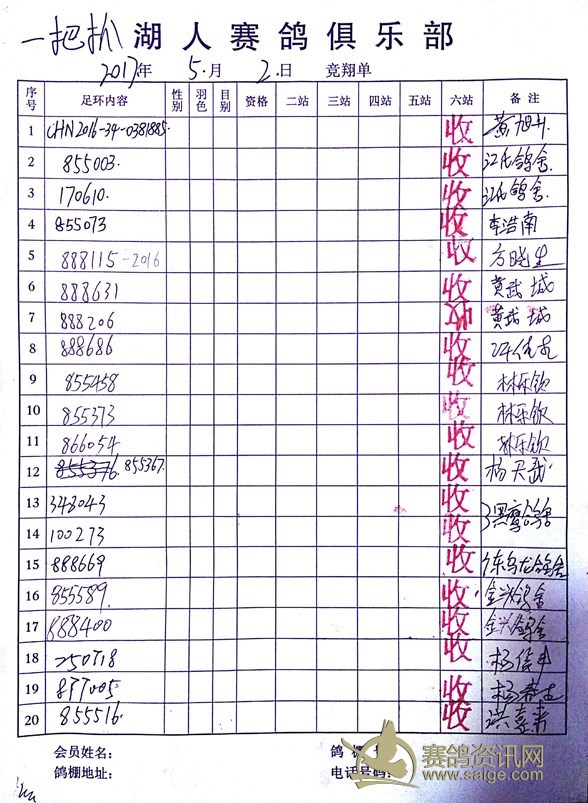 一把抓 湖人赛鸽俱乐部
2017年 5月 2日 竞翔单
序号 足环内容 性别 羽色 目别 资格 二站 三站 四站 五站 六站 备注
1 CHN2016-34-0381885. 收 黄旭升
2 855003. 收 江氏鸽舍.
3 170610. 收 江氏鸽舍.
4 855073 收 李浩南
5 888115-2016 收 方晓生
6 888631 收 黄武城
7 888206 收 黄武城
8 888686 收
9 855458 收 林乐钦
10 855373 收 林乐钦
11 866054 收 林乐钦
12 855376. 855367. 收 杨天武
13 348043 收
14 100273 收
15 888669 收
16 855589. 收 金兴鸽舍
17 888400 收 金兴鸽舍
18 250718 收
19 877005 收
20 855516. 收
会员姓名： 鸽棚
鸽棚地址： 电话号码：
赛鸽资讯网
www.saige.com